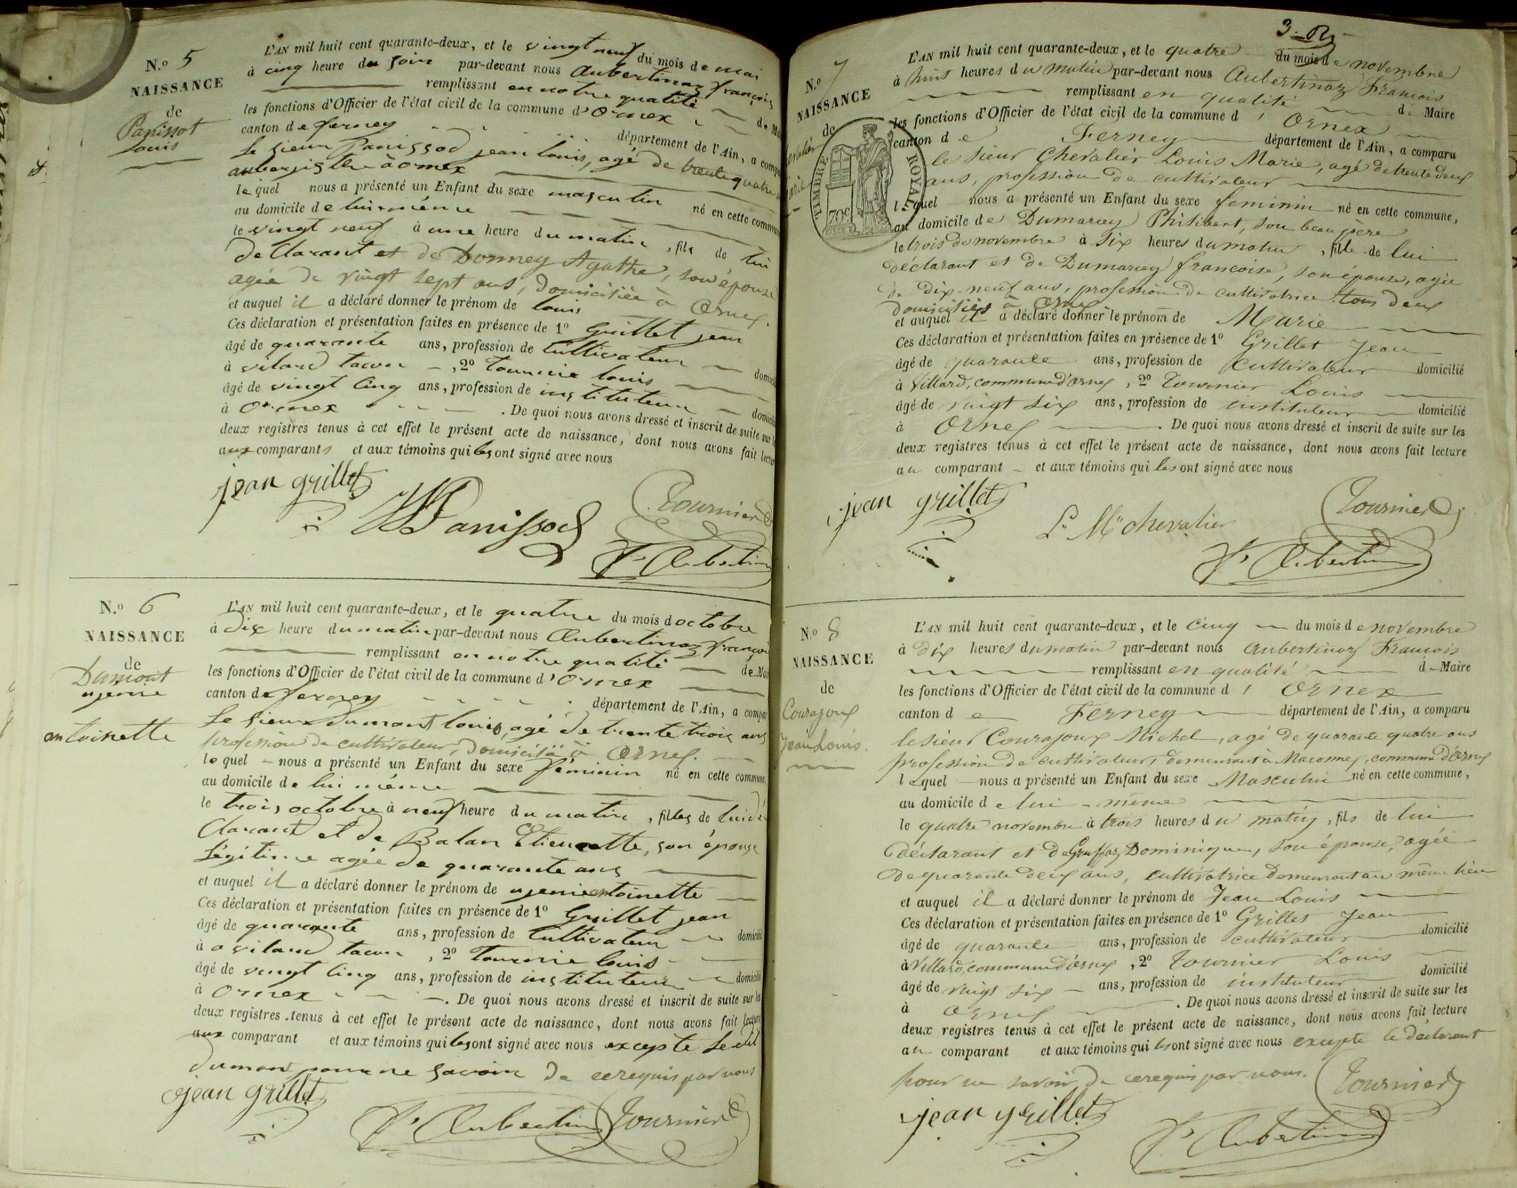 N.o 5
NAISSANCE
de
Panissot
Louis
L'AN mil huit cent quarante-deux, et le vingt neuf du mois de mai
à cinq heure du soir par-devant nous Aubertinaz françois
remplissant en notre qualité de Maire
les fonctions d'Officier de l'état civil de la commune d'Ornex
canton de ferney département de l'Ain, a comparu
Le sieur Panissod jean louis, agé de trente quatre
aubergiste à ornex
lequel nous a présenté un Enfant du sexe masculin né en cette commune
au domicile de lui même
le vingt neuf à une heure du matin, fils de lui
déclarant et de Donney Agathe, son épouse
agée de vingt sept ans, domiciliée à Ornex.
et auquel il a déclaré donner le prénom de louis
Ces déclaration et présentation faites en présence de 1o Grillet jean
âgé de quarante ans, profession de Cultivateur domicilié
à vilard tacon, 2o Tournie louis
âgé de vingt cinq ans, profession de instituteur domicilié
à Ornex. De quoi nous avons dressé et inscrit de suite sur les
deux registres tenus à cet effet le présent acte de naissance, dont nous avons fait lecture
aux comparants et aux témoins qui les ont signé avec nous
jean grillet
Panissod
Tournier
Aubertin
N.o 6
NAISSANCE
de
Dumont
ugenie
antoinette
L'AN mil huit cent quarante-deux, et le quatre du mois d octobre
à dix heure du matin par-devant nous Aubertinaz françois
remplissant en notre qualité de Maire
les fonctions d'Officier de l'état civil de la commune d'Ornex
canton de ferney département de l'Ain, a comparu
Le sieur dumont louis, agé de trente trois ans
profession de cultivateur, domicilié à Ornex.
lequel nous a présenté un Enfant du sexe féminin né en cette commune,
au domicile de lui même
le trois octobre à neuf heure du matin, filles de lui dé
Clarant et de Balan Etiennette, son épouse
légitime agée de quarante ans
et auquel il a déclaré donner le prénom de ugenie antoinette
Ces déclaration et présentation faites en présence de 1o Grillet jean
âgé de quarante ans, profession de Cultivateur domicilié
à vilard tacon, 2o Tournie louis
âgé de vingt cinq ans, profession de instituteur domicilié
à Ornex. De quoi nous avons dressé et inscrit de suite sur les
deux registres tenus à cet effet le présent acte de naissance, dont nous avons fait lecture
aux comparant et aux témoins qui les ont signé avec nous excepte le dit
dumon pour ne savoir de ce requis par nous
jean grillet
Aubertin
Tournier
3
N.o 7
NAISSANCE
de
TIMBRE ROYAL
70c
L'AN mil huit cent quarante-deux, et le quatre du mois de novembre
à huit heures du matin par-devant nous Aubertinaz François
remplissant en qualité de Maire
les fonctions d'Officier de l'état civil de la commune d'Ornex
canton de Ferney département de l'Ain, a comparu
le sieur Chevalier Louis Marie, agé de trente deux
ans, profession de cultivateur
lequel nous a présenté un Enfant du sexe féminin né en cette commune,
au domicile de Dumarey Philibert, son beau pere
le trois de novembre à six heures du matin, fille de lui
déclarant et de Dumarey françoise, son épouse, agée
de dix-neuf ans, profession de cultivatrice tous deux
domiciliés à Ornex
et auquel il a déclaré donner le prénom de Marie
Ces déclaration et présentation faites en présence de 1o Grillet Jean
âgé de quarante ans, profession de Cultivateur domicilié
à Villard, commune d'ornex, 2o Tournier Louis
âgé de vingt six ans, profession de instituteur domicilié
à Ornex. De quoi nous avons dressé et inscrit de suite sur les
deux registres tenus à cet effet le présent acte de naissance, dont nous avons fait lecture
au comparant et aux témoins qui les ont signé avec nous
jean grillet
L. Me chevalier
Tournier
Aubertin
N.o 8
NAISSANCE
de
Courajoux
Jean Louis.
L'AN mil huit cent quarante-deux, et le cinq du mois de novembre
à dix heures du matin par-devant nous Aubertinaz François
remplissant en qualité de Maire
les fonctions d'Officier de l'état civil de la commune d'Ornex
canton de Ferney département de l'Ain, a comparu
le sieur Courajoux Michel, agé de quarante quatre ans
profession de cultivateur, demeurant à Maconnex, commune d'Ornex
lequel nous a présenté un Enfant du sexe Masculin né en cette commune,
au domicile de lui-même
le quatre novembre à trois heures du matin, fils de lui
déclarant et de Dominique, son épouse, agée
de quarante deux ans, cultivatrice demeurant au même lieu
et auquel il a déclaré donner le prénom de Jean Louis
Ces déclaration et présentation faites en présence de 1o Grillet Jean
âgé de quarante ans, profession de cultivateur domicilié
à Villard, commune d'ornex, 2o Tournier Louis
âgé de vingt six ans, profession de instituteur domicilié
à Ornex. De quoi nous avons dressé et inscrit de suite sur les
deux registres tenus à cet effet le présent acte de naissance, dont nous avons fait lecture
au comparant et aux témoins qui les ont signé avec nous excepte le déclarant
pour ne savoir, de ce requis par nous.
jean grillet
Tournier
Aubertin